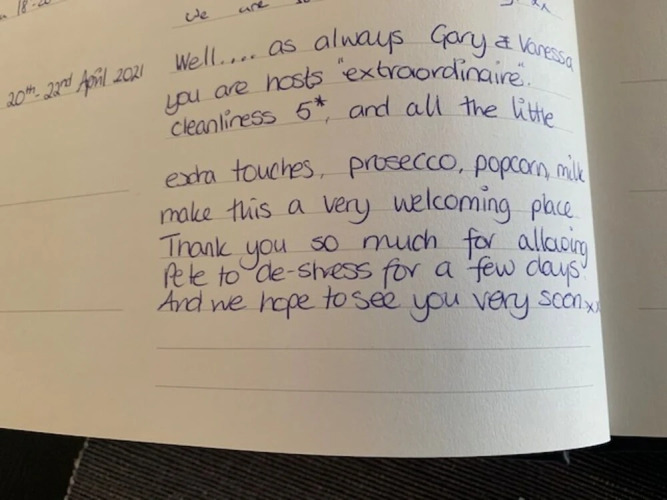 We are
20th - 22nd April 2021
Well.... as always Gary & Vanessa
you are hosts "extraordinaire".
cleanliness 5*, and all the little
extra touches, prosecco, popcorn, milk
make this a very welcoming place
Thank you so much for allowing
Pete to de-stress for a few days.
And we hope to see you very soon xx